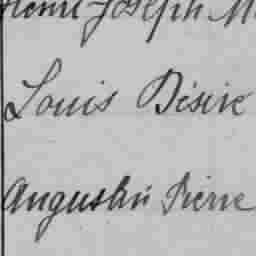 Henri Joseph M
Louis Désiré
Augustin Pierre